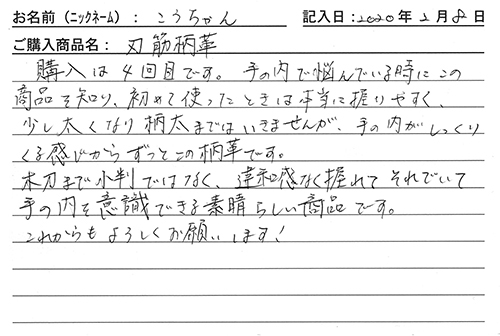 お名前（ニックネーム）：こうちゃん 記入日：2020年2月8日
ご購入商品名：刃筋柄革
購入は4回目です。手の内で悩んでいる時にこの
商品を知り、初めて使ったときは本当に握りやすく、
少し太くなり柄太まではいきませんが、手の内がしっくり
くる感じからずっとこの柄革です。
木刀まで小判ではなく、違和感なく握れてそれでいて
手の内を意識できる素晴らしい商品です。
これからもよろしくお願いします！